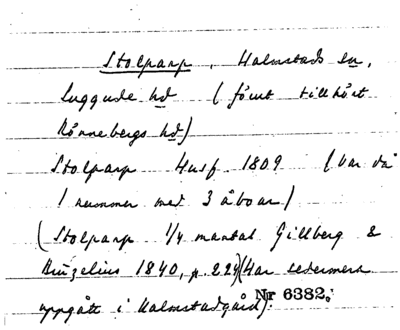 Stolparp, Halmstads sn,
Luggude hd (förut tillhört
Rönnebergs hd)
Stolparp Husf 1809 (var då
1 nummer med 3 åboar)
(Stolparp 1/4 mantal Gillberg &
Bruzelius 1840, p. 224) (Har sedermera
uppgått i Halmstadgård).
Nr 6382.